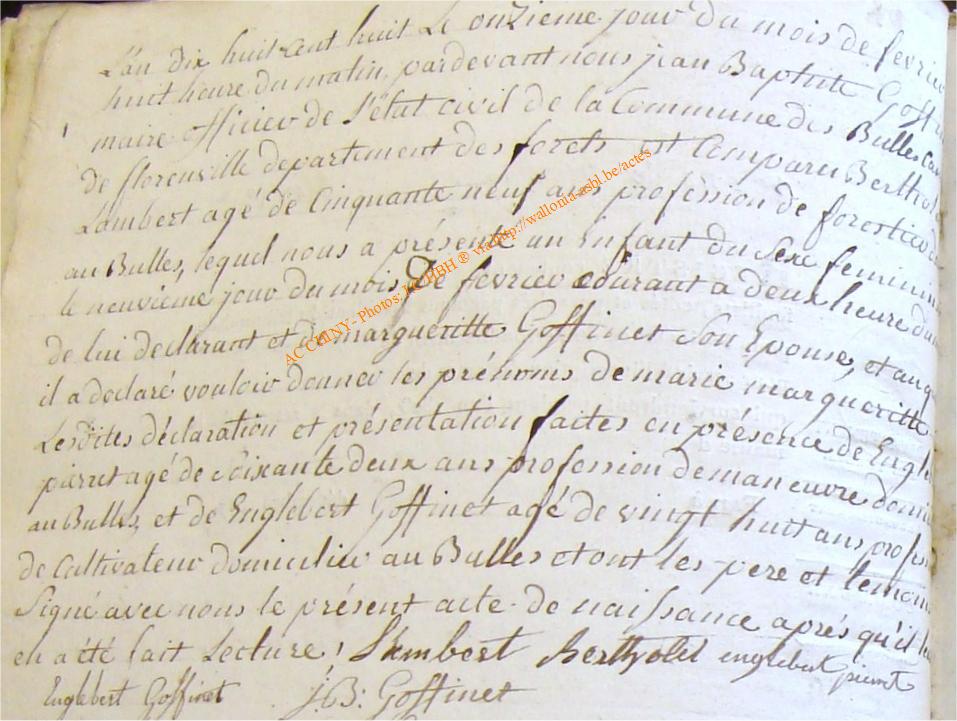 L'an dix huit cent huit Le onzieme jour du mois de fevrier
huit heure du matin, pardevant nous jean Baptiste Goffin
maire officier de L'état civil de la Commune des Bulles can
de florenville departement des forets est Comparu Berthol
Lambert agé de Cinquante neuf ans profession de forestier
au Bulles, lequel nous a présenté un Enfant du Sexe feminin
le neuvieme jour du mois de fevrier courant a deux heure du
de lui declarant et de margueritte Goffinet Son Epouse, et auq
il a declaré vouloir donner les prénoms de marie margueritte
Lesdites déclaration et présentation faites en présence de Engle
pierret agé de Soixante deux ans profession de maneuvre domi
au Bulles, et de Englebert Goffinet agé de vingt huit ans profes
de Cultivateur domicilier au Bulles et ont les pere et temoin
Signé avec nous le présent acte de naissance aprés qu'il le
en a été fait Lecture! Lambert Bertholet englebert pierret
Englebert Goffinet J:B: Goffinet
AC CHINY - Photos: via http://wallonia-asbl.be/actes